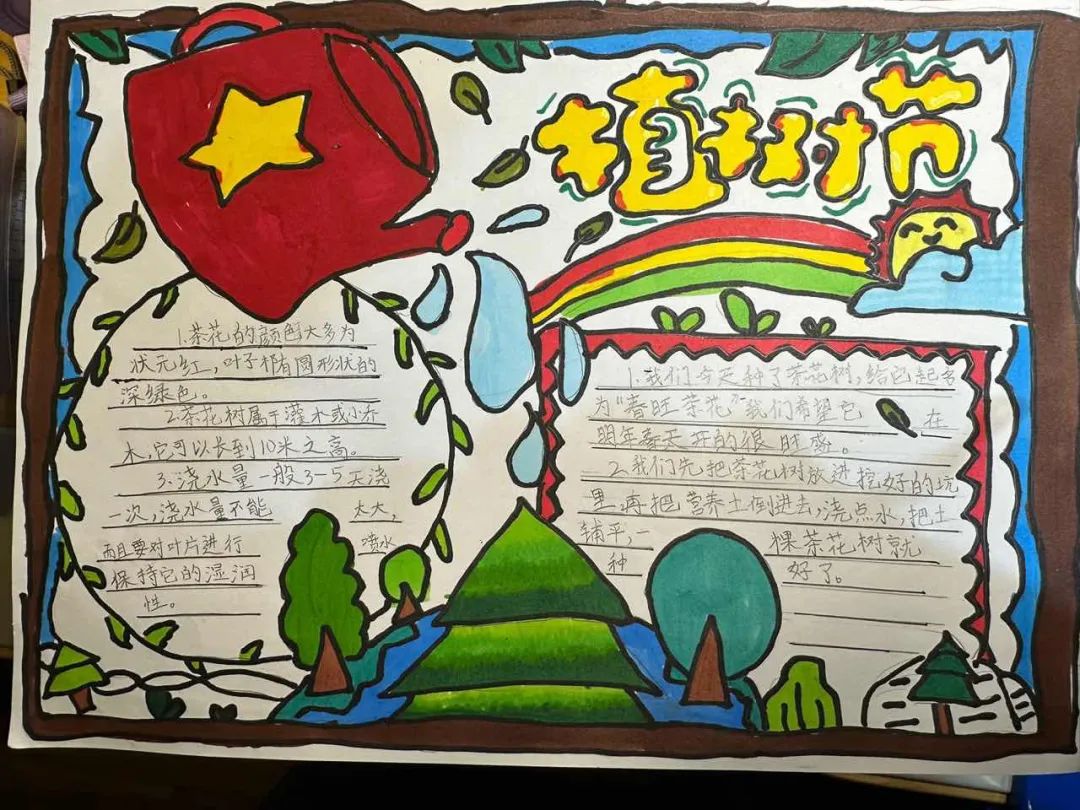 植树节
1.茶花的颜色大多为
状元红,叶子都有圆形状的
深绿色。
2.茶花树属于灌木或小乔
木,它可以长到10米之高。
3.浇水量一般3-5天浇
一次,浇水量不能太大,
而且要对叶片进行喷水
保持它的湿润
性。
1.我们今天种了茶花树,给它起名
为“春旺茶花”我们希望它,在
明年春天开的很旺盛。
2.我们先把茶花树放进挖好的坑
里,再把营养土倒进去,浇点水,把土
铺平,一棵茶花树就
种好了。